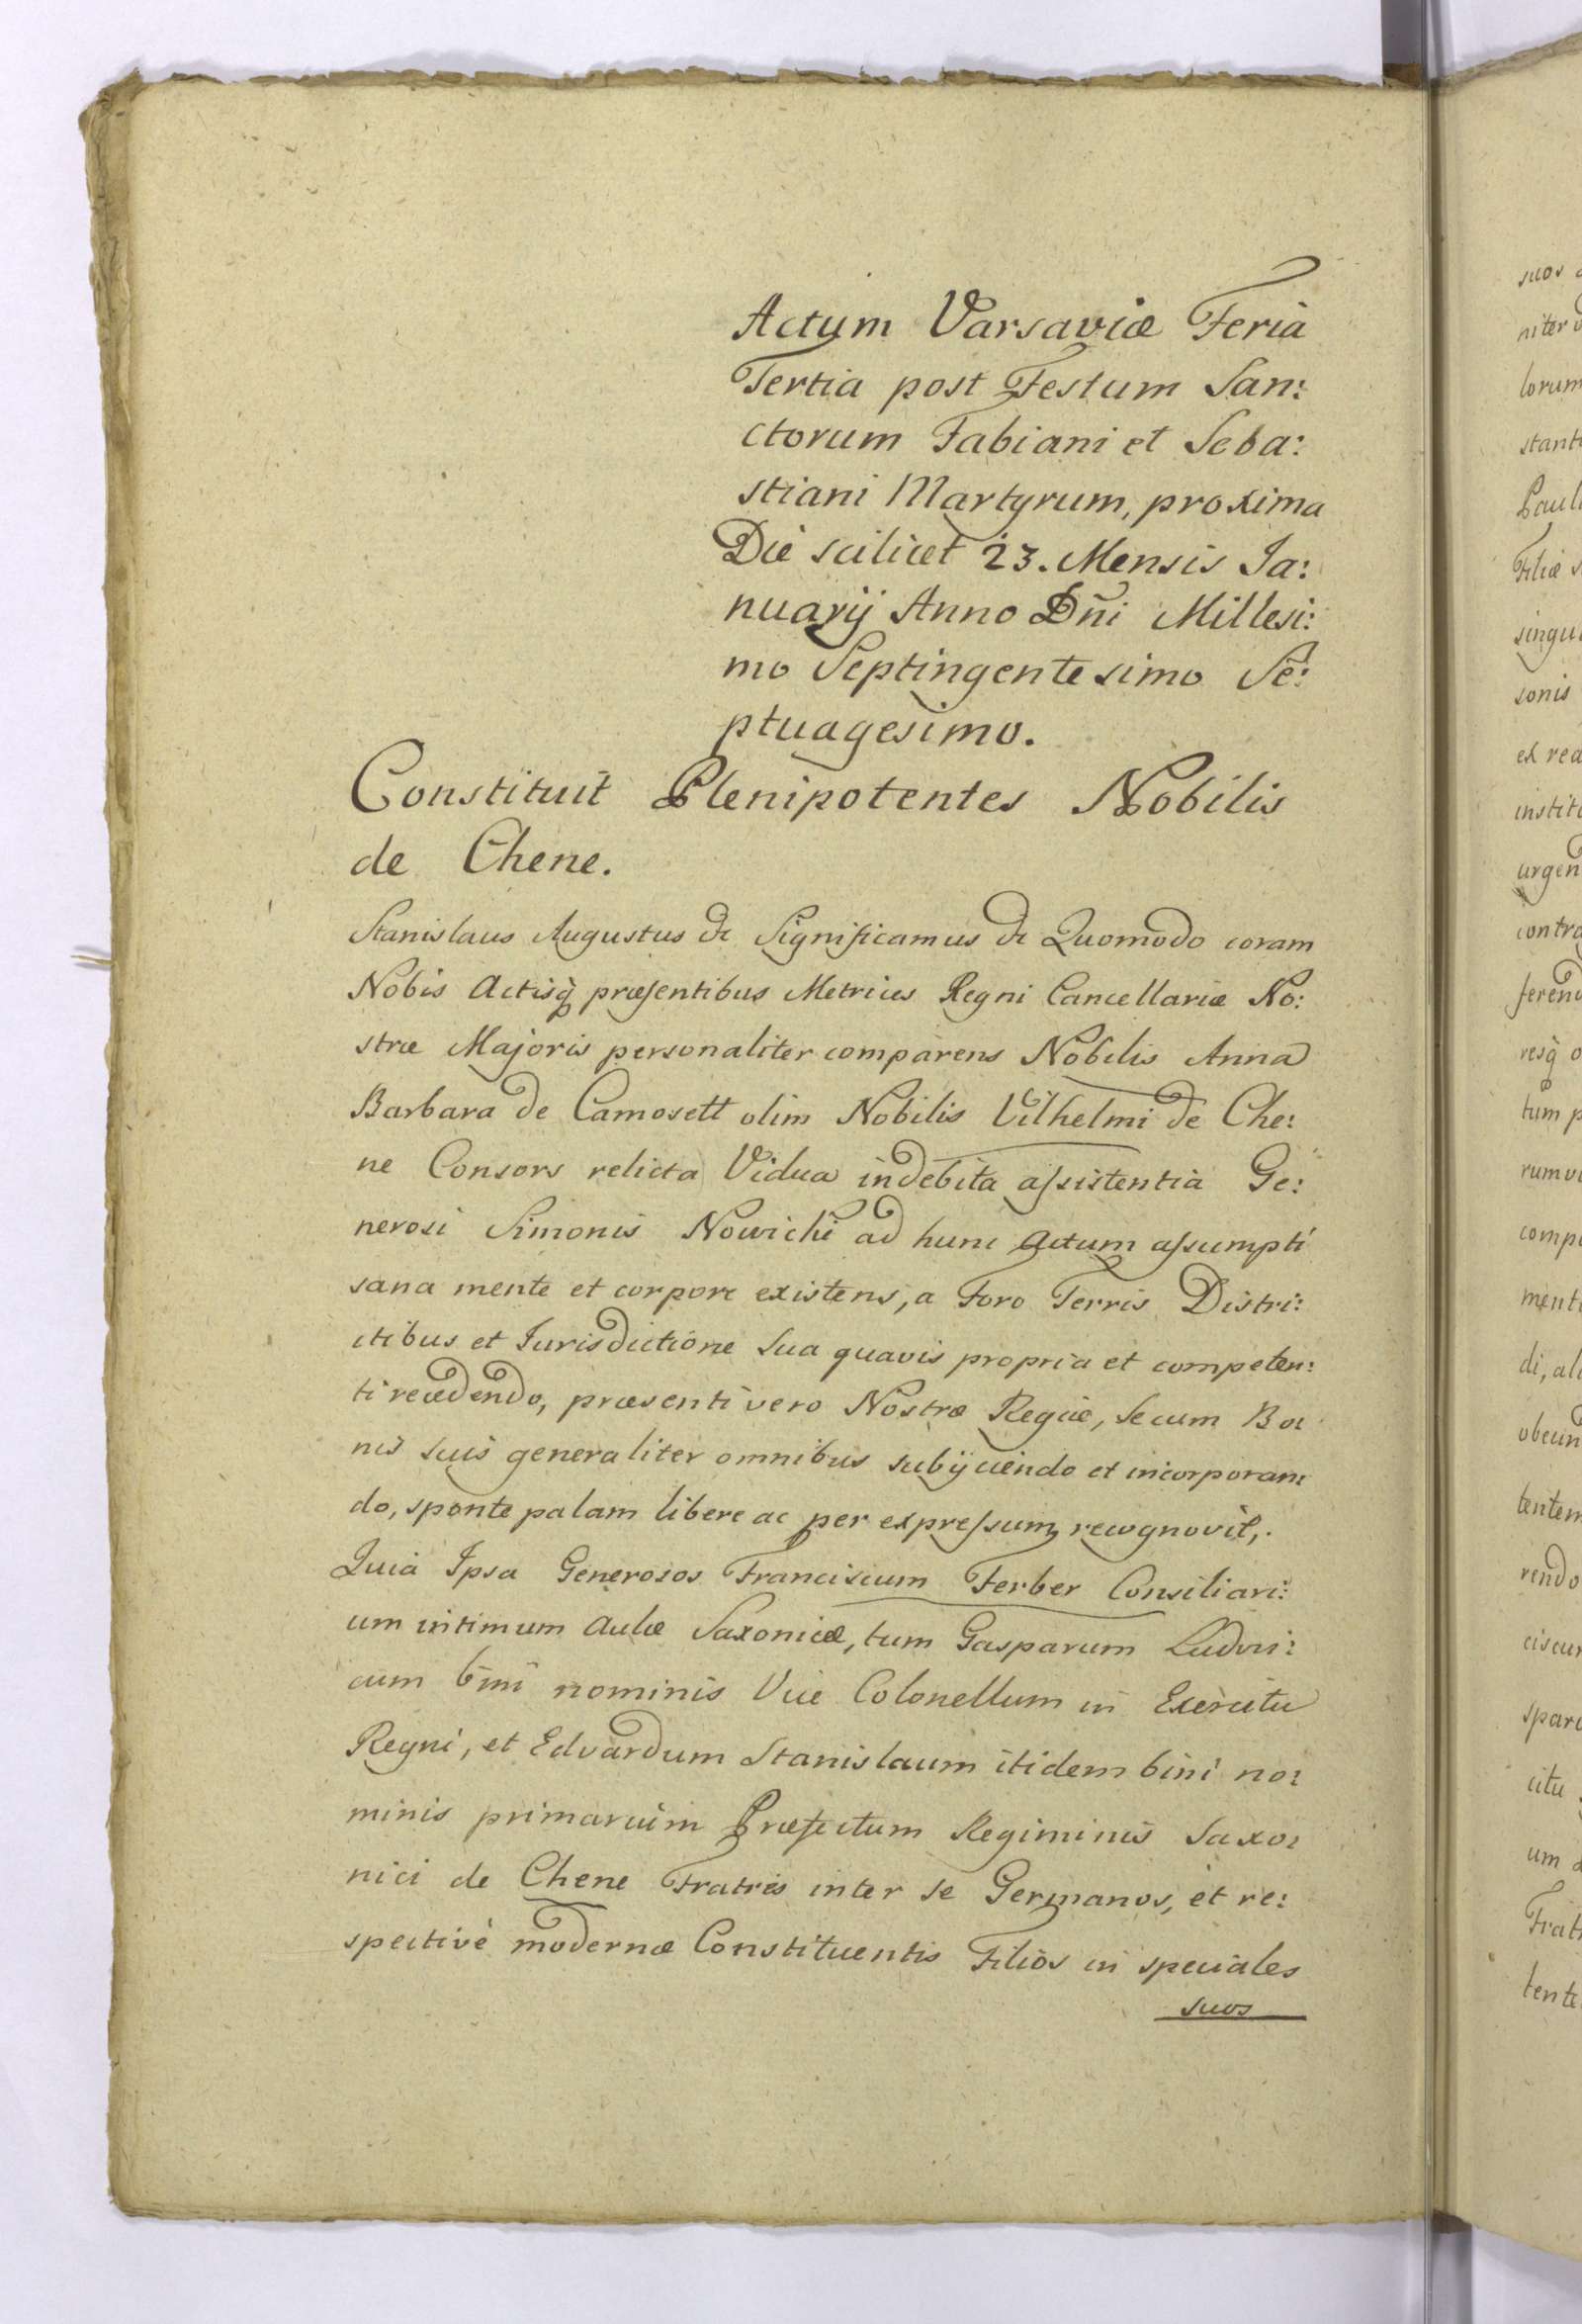 Actum Varsaviæ Feria
Tertia post Festum San:
ctorum Fabiani et Seba:
stiani Martyrum, proxima
Die scilicet 23. Mensis Ja:
nuarij Anno Dñi Millesi:
mo Septingentesimo Se:
ptuagesimo.
Constituit Plenipotentes Nobilis
de Chene.
Stanislaus Augustus &c Significamus &c Quomodo coram
Nobis Actisq̃ præsentibus Metrices Regni Cancellariæ No:
stræ Majoris personaliter comparens Nobilis Anna
Barbara de Camosett olim Nobilis Vilhelmi de Che:
ne Consors relicta Vidua in debita assistentia Ge:
nerosi Simonis Nowicki ad hunc Actum assumpti
sana mente et corpore existens, a Foro Terris Distri:
ctibus et Jurisdictione Sua quavis propria et competen:
ti recedendo, præsenti vero Nostræ Regiæ, Se cum Bo:
nis suis generaliter omnibus subijciendo et incorporan:
do, sponte palam libere ac per expressum recognovit,
Quia Ipsa Generosos Franciscum Ferber Consiliari:
um intimum Aulæ Saxonicæ, tum Gasparum Ludvi:
cum bini nominis Vice Colonellum in Exercitu
Regni, et Edvardum Stanislaum itidem bini no:
minis primarium Præfectum Regiminis Saxo:
nici de Chene Fratres inter se Germanos, et re:
spective modernæ Constituentis Filios in speciales
suos
suos
niter
lorum
stant
Paul
Filiæ
singu
sonis
ex rea
instit
urgen
contra
feren
resq̃
tum
rumv
comp
ment
di, al
obeun
tentem
rendo
ciscu
spar
citu
um
Frat
tente